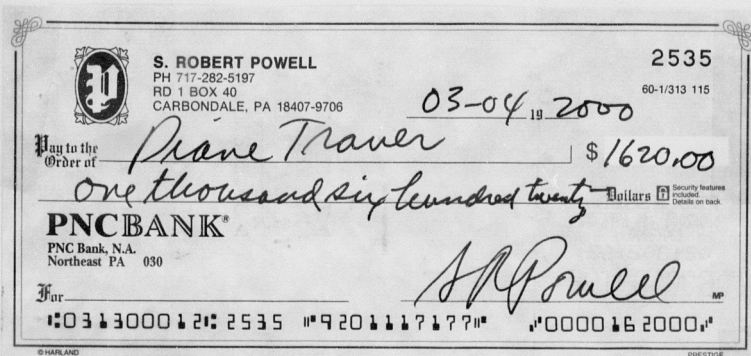 S. ROBERT POWELL
PH 717-282-5197
RD 1 BOX 40
CARBONDALE, PA 18407-9706
2535
60-1/313 115
03-04 19 2000
Pay to the Order of Diane Traver $ 1620.00
One thousand six hundred twenty Dollars Security features included. Details on back.
PNCBANK®
PNC Bank, N.A.
Northeast PA 030
For SR Powell MP
⑆031300012⑆ 2535 ⑈9201117177⑈ ⑇0000162000⑇
© HARLAND PRESTIGE